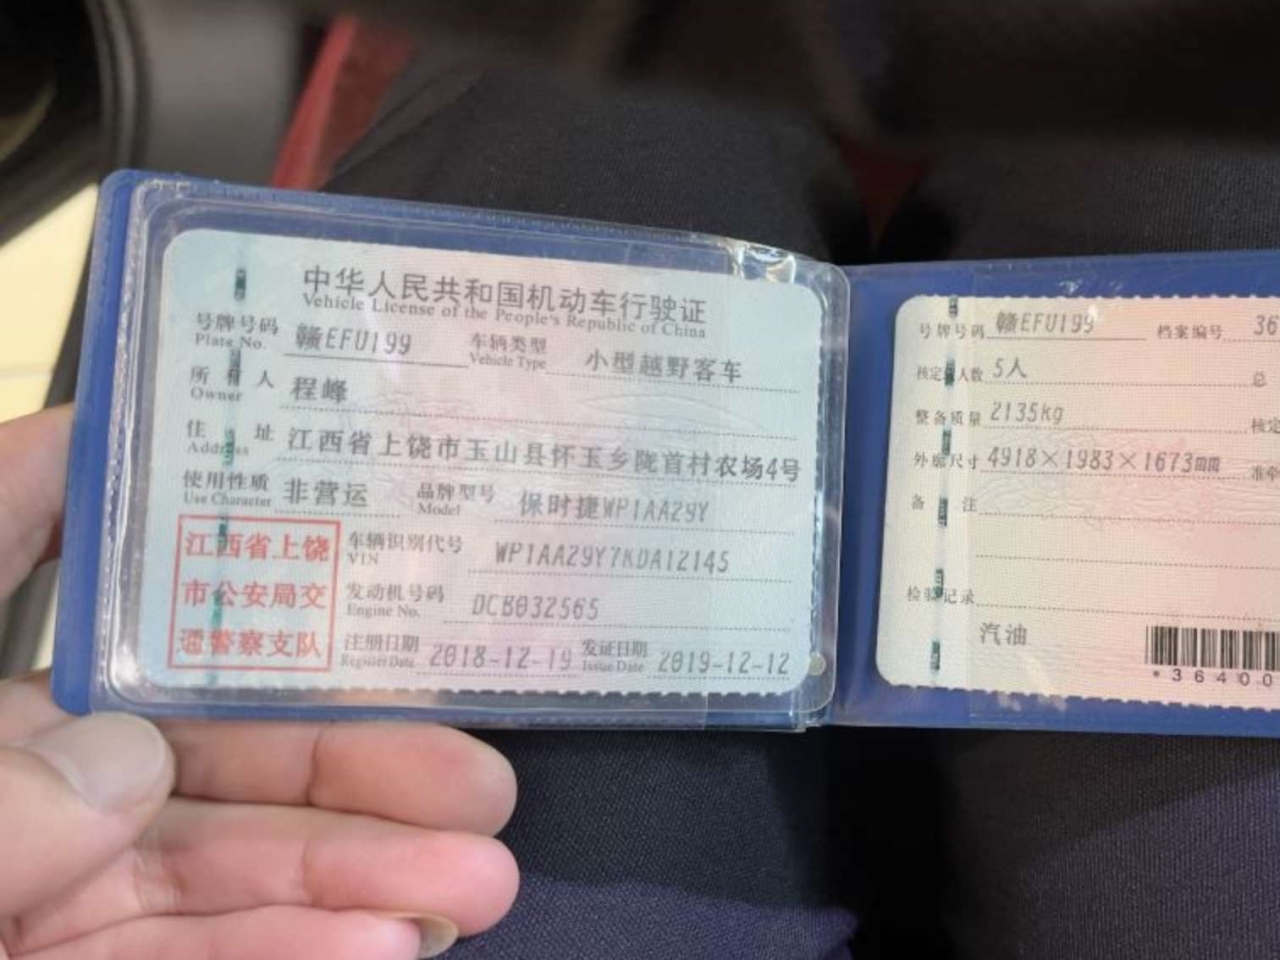 中华人民共和国机动车行驶证
Vehicle License of the People's Republic of China
号牌号码 赣EFU199 车辆类型 小型越野客车
Plate No. Vehicle Type
所有人 程峰
Owner
住址 江西省上饶市玉山县怀玉乡陇首村农场4号
Address
使用性质 非营运 品牌型号 保时捷WP1AA29Y
Use Character Model
江西省上饶
市公安局交
通警察支队
车辆识别代号 WP1AA29Y7KDA12145
VIN
发动机号码 DCB032565
Engine No.
注册日期 2018-12-19 发证日期 2019-12-12
Register Date Issue Date
号牌号码 赣EFU199 档案编号 36
核定人数 5人 总
整备质量 2135kg 核定
外廓尺寸 4918×1983×1673mm 准牵
备注
检验记录
汽油
*36400